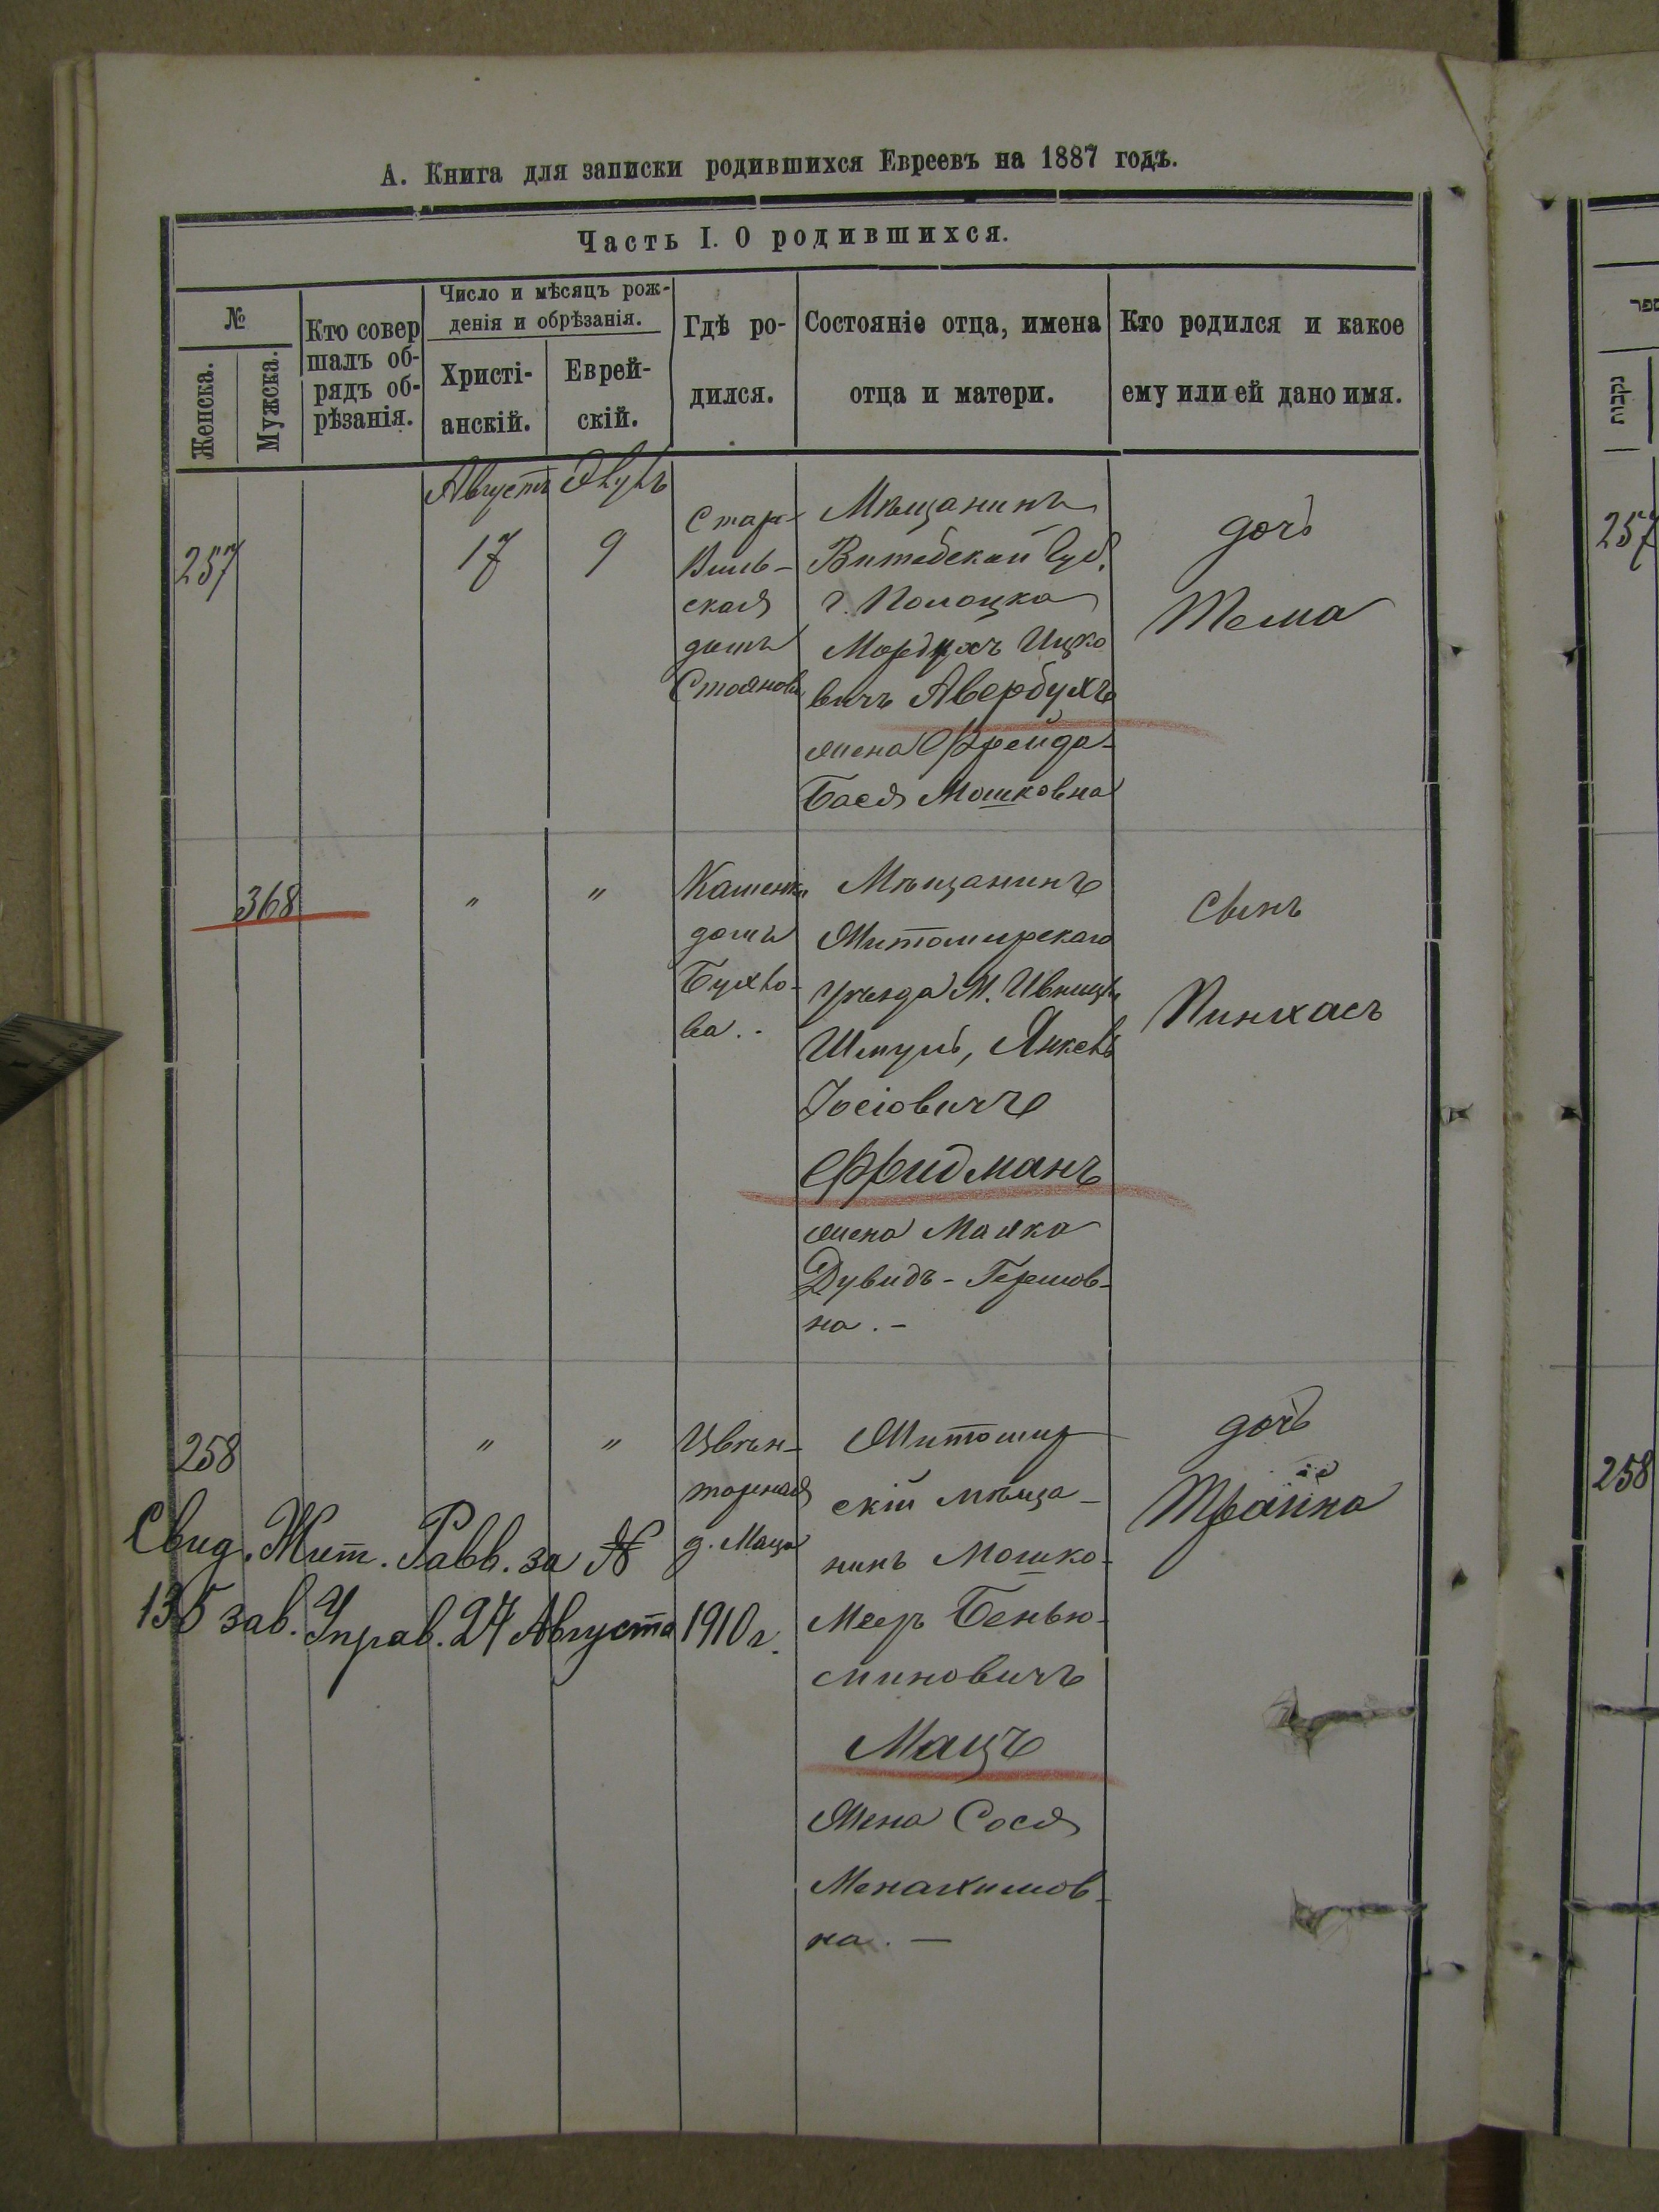 А. Книга для записки родившихся Евреевъ на 1887 годъ.
Часть I. О родившихся.
№
Женска.
Мужска.
Кто совер
шалъ об-
рядъ об-
рѣзанія.
Число и мѣсяцъ рож-
денія и обрѣзанія.
Христі-
анскій.
Еврей-
скій.
Гдѣ ро-
дился.
Состояніе отца, имена
отца и матери.
Кто родился и какое
ему или ей дано имя.
Августъ
257
17
9
Стар-
Виль-
ская
домъ
Стоянова
Мѣщанинъ
Витебской Губ.
г. Полоцка
Мордухъ Ицко
вичъ Авербухъ
жена Фрейда-
Бася Мошковна
дочь
Тема
368
"
"
Кашенки
домъ
Бухо-
ва.
Мѣщанинъ
Житомирскаго
уѣзда М. Ивницы
Шмуль, Янкевъ
Іосіовичъ
Фридманъ
жена Малка
Дувидъ-Гершов-
на.-
Сынъ
Пинхасъ
258
"
"
Цвѣн-
торная
д. Маца
Житомир-
скій мѣща-
нинъ Мошко-
Меер Бенью-
миновичъ
Мацъ
Жена Сося
Менахимов-
на.-
дочь
Трайна
Свид. Жит. Равв. за №
135 зав. Управ. 27 Августа 1910 г.
ספר
נקבות
257
258